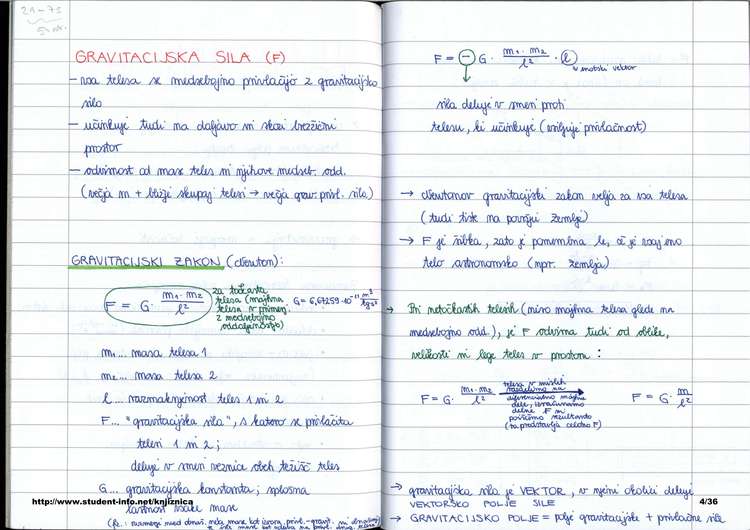 21-73
GRAVITACIJSKA SILA (F)
- vsa telesa se medsebojno privlačijo z gravitacijsko
silo
- učinkuje tudi na daljavo in skozi brezzračni
prostor
- odvisnost od mase teles in njihove medseb. odd.
(večja m + bližje skupaj telesi → večja grav. privl. sila)
GRAVITACIJSKI ZAKON (Newton):
F = G · m₁ · m₂ / l²
za točkasta
telesa (majhna
telesa v primerj.
z medsebojno
oddaljenostjo)
G = 6,67259 · 10⁻¹¹ m³/kg s²
m₁ ... masa telesa 1
m₂ ... masa telesa 2
l ... razmaknjenost teles 1 in 2
F ... "gravitacijska sila", s katero se privlačita
telesi 1 in 2;
deluje v smeri veznice obeh težišč teles
G ... gravitacijska konstanta; splošna
lastnost vsake mase
http://www.student-info.net/knjiznica
F = - G · m₁ · m₂ / l² · l
enotski vektor
sila deluje v smeri proti
telesu, ki učinkuje (privlačnost)
→ Newtonov gravitacijski zakon velja za vsa telesa
(tudi tista na površju Zemlje)
→ F je šibka, zato je pomembna le, če je vsaj eno
telo astronomsko (npr. Zemlja)
→ Pri netočkastih telesih (niso majhna telesa glede na
medsebojno odd.), je F odvisna tudi od oblike,
velikosti in lege teles v prostoru:
F = G · m₁ · m₂ / l²
telesa v mislih
razdelimo na
diferencialno majhne
dele, izračunamo
delne F in
poiščemo rezultanto
(ta predstavlja celotno F)
F = G · m / l²
→ gravitacijska sila je VEKTOR, v njeni okolici deluje
VEKTORSKO POLJE SILE
4/36
→ GRAVITACIJSKO POLJE = polje gravitacijske + privlačne sile